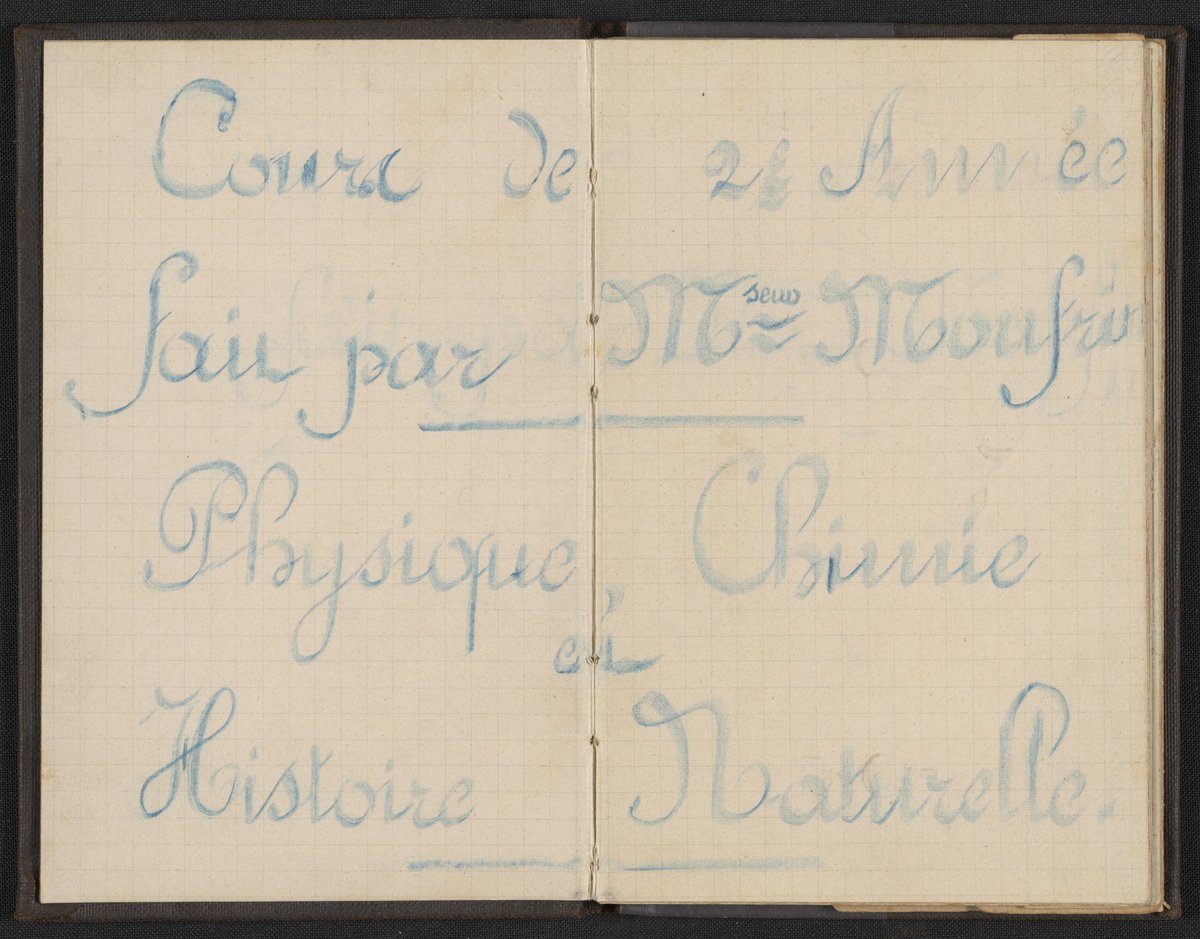 Cours de 2e Année
fait par Mseur Moufrin
Physique, Chimie
et
Histoire Naturelle.